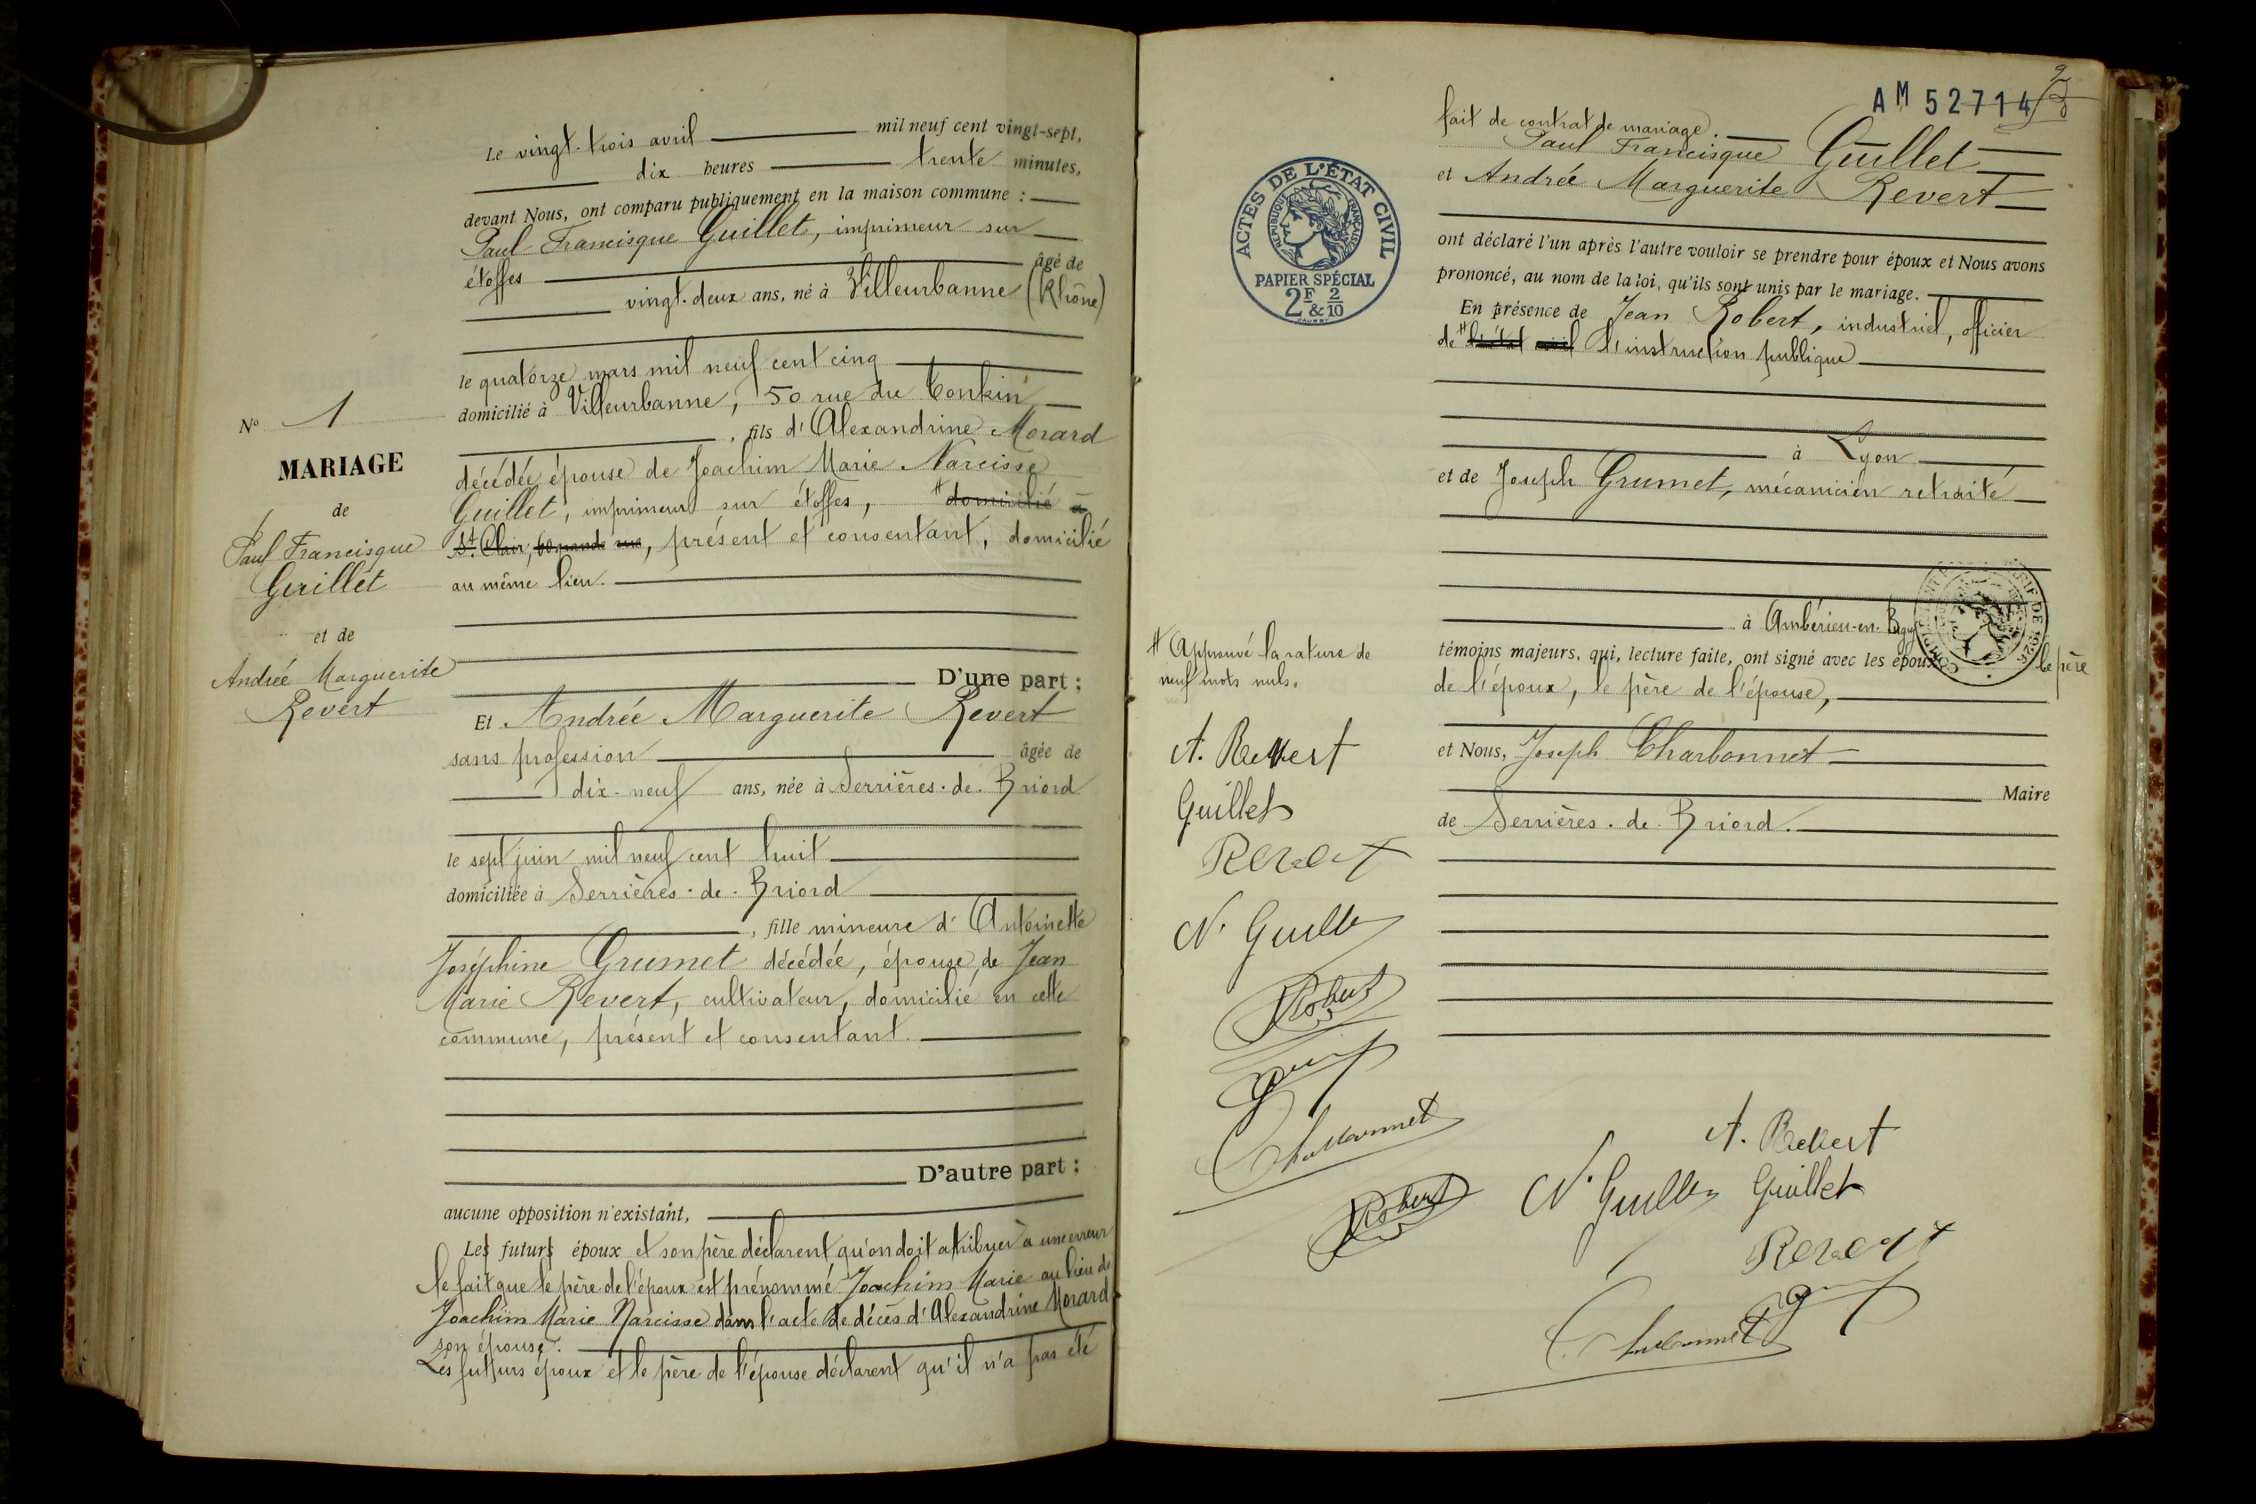 N° 1
MARIAGE
de
Paul Francisque
Guillet
et de
Andrée Marguerite
Revert
Le vingt-trois avril mil neuf cent vingt-sept,
dix heures trente minutes,
devant Nous, ont comparu publiquement en la maison commune :
Paul Francisque Guillet, imprimeur sur
étoffes âgé de
vingt-deux ans, né à Villeurbanne (Rhône)
le quatorze mars mil neuf cent cinq
domicilié à Villeurbanne, 50 rue du Tonkin
, fils d'Alexandrine Morard
décédée épouse de Joachim Marie Narcisse
Guillet, imprimeur sur étoffes, # domicilié à
St. Clair, Grande rue, présent et consentant, domicilié
au même lieu.
D'une part ;
Et Andrée Marguerite Revert
sans profession âgée de
dix-neuf ans, née à Serrières-de-Briord
le sept juin mil neuf cent huit
domiciliée à Serrières-de-Briord
, fille mineure d'Antoinette
Joséphine Grumet décédée, épouse de Jean
Marie Revert, cultivateur, domicilié en cette
commune, présent et consentant.
D'autre part ;
aucune opposition n'existant,
Les futurs époux et son père déclarent qu'on doit attribuer à une erreur
le fait que le père de l'époux est prénommé Joachim Marie au lieu de
Joachim Marie Narcisse dans l'acte de décès d'Alexandrine Morard
son épouse.
Les futurs époux et le père de l'épouse déclarent qu'il n'a pas été
AM 52714
fait de contrat de mariage.
Paul Francisque Guillet
et Andrée Marguerite Revert
ACTES DE L'ÉTAT CIVIL
RÉPUBLIQUE FRANÇAISE
PAPIER SPÉCIAL
2F & 2/10
ont déclaré l'un après l'autre vouloir se prendre pour époux et Nous avons
prononcé, au nom de la loi, qu'ils sont unis par le mariage.
En présence de Jean Robert, industriel, officier
de # l'état civil l'instruction publique
à Lyon
et de Joseph Grumet, mécanicien retraité
à Ambérieu-en-Bugey
témoins majeurs, qui, lecture faite, ont signé avec les époux le père
de l'époux, le père de l'épouse,
et Nous, Joseph Charbonnet
Maire
de Serrières-de-Briord.
# Approuvé la rature de
neuf mots nuls.
A. Revert
Guillet
Revert
N. Guillet
Robert
Charbonnet
Robert
N. Guillet
A. Revert
Guillet
Revert
Charbonnet